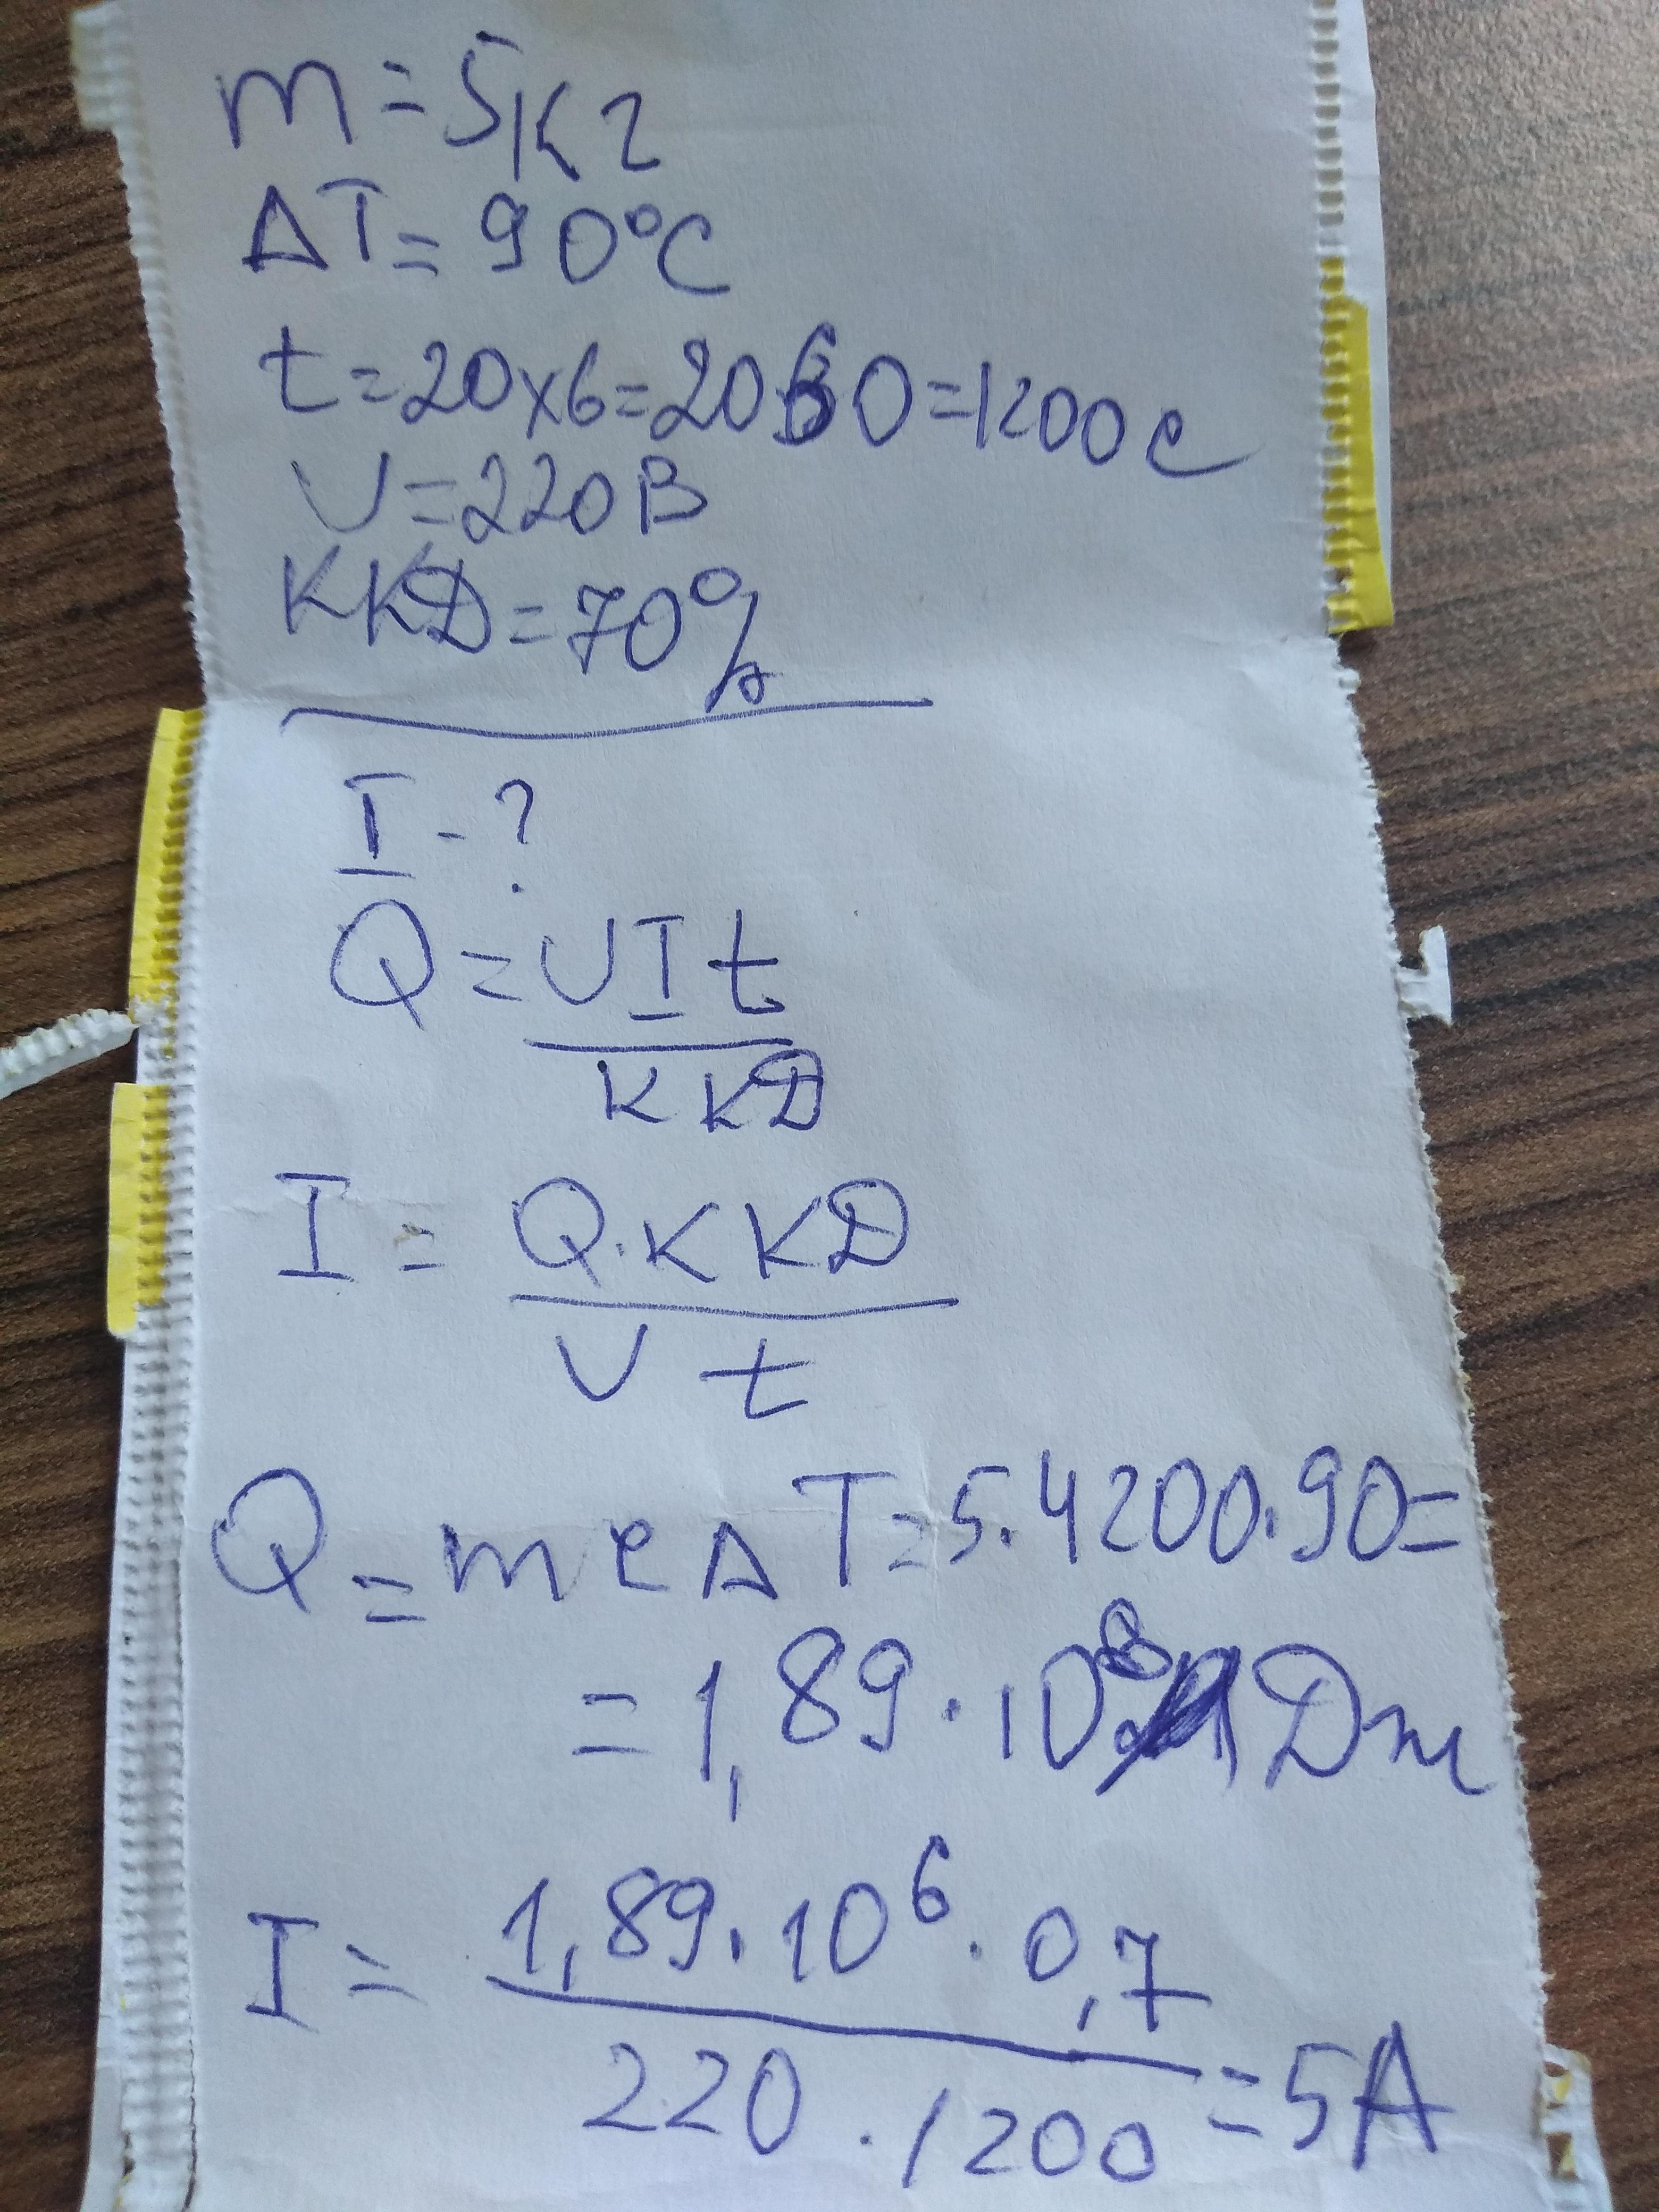 m = 5 кг
ΔT = 90°C
t = 20 x 6 = 20 60 = 1200 c
U = 220 В
ККД = 70%
I - ?
Q = UIt
ККД
I = Q · ККД
U t
Q = m c Δ T = 5 · 4200 · 90 =
= 1,89 · 10⁶ Дж
I = 1,89 · 10⁶ · 0,7
220 · 1200 = 5 A